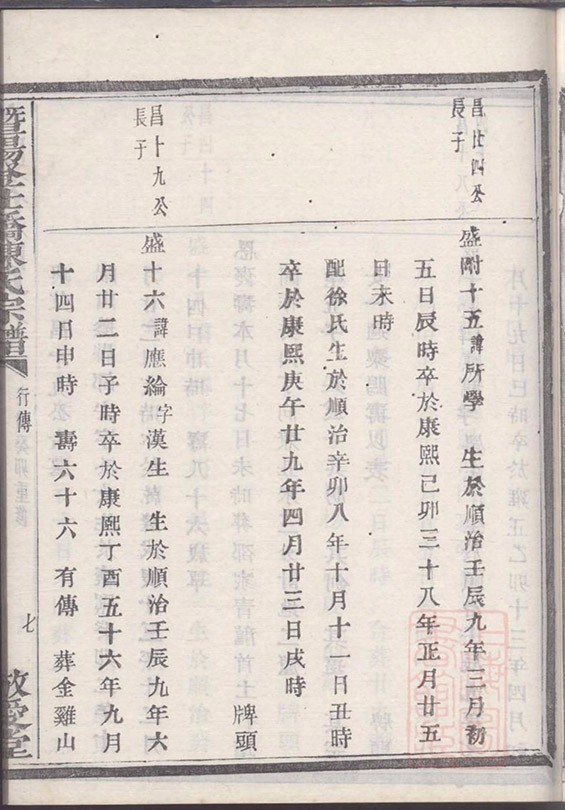 昌廿四公
長子
盛附十五諱所學 生於順治壬辰九年三月初
五日辰時卒於康熙己卯三十八年正月廿五
日未時
配徐氏生於順治辛卯八年十月十一日丑時
卒於康熙庚午廿九年四月廿三日戌時
牌頭
昌十九公
長子
盛十六諱應綸字漢生 生於順治壬辰九年六
月廿二日子時卒於康熙丁酉五十六年九月
十四日申時 壽六十六 有傳 葬金雞山
陳氏宗譜
行傳
癸卯重修
七
敬愛堂